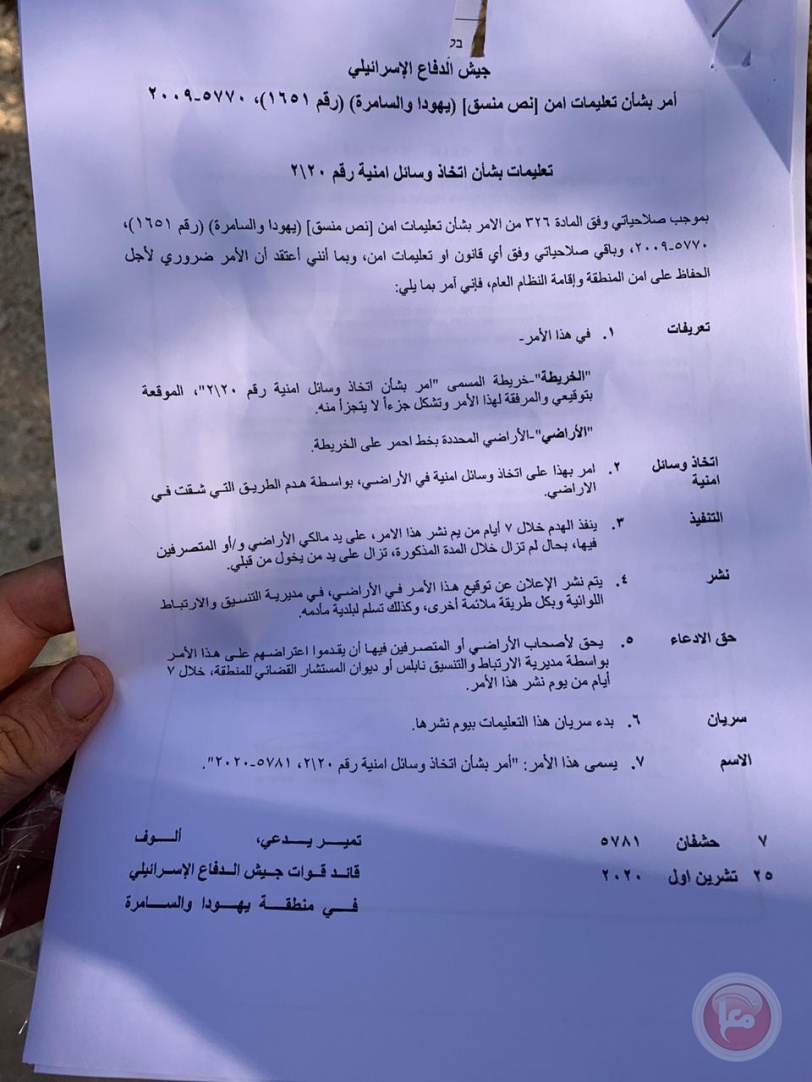 בל
جيش الدفاع الإسرائيلي
أمر بشأن تعليمات امن [نص منسق] (يهودا والسامرة) (رقم ١٦٥١)، ٥٧٧٠-٢٠٠٩
تعليمات بشأن اتخاذ وسائل امنية رقم ٢\٢٠
بموجب صلاحياتي وفق المادة ٣٢٦ من الامر بشأن تعليمات امن [نص منسق] (يهودا والسامرة) (رقم ١٦٥١)،
٥٧٧٠-٢٠٠٩، وباقي صلاحياتي وفق أي قانون او تعليمات امن، وبما أنني أعتقد أن الأمر ضروري لأجل
الحفاظ على امن المنطقة وإقامة النظام العام، فإني آمر بما يلي:
تعريفات ١. في هذا الأمر-
"الخريطة"-خريطة المسمى "امر بشأن اتخاذ وسائل امنية رقم ٢\٢٠"، الموقعة
بتوقيعي والمرفقة لهذا الأمر وتشكل جزءاً لا يتجزأ منه.
"الأراضي"-الأراضي المحددة بخط احمر على الخريطة.
اتخاذ وسائل امنية ٢. امر بهذا على اتخاذ وسائل امنية في الأراضي، بواسطة هدم الطريق التي شقت في
الاراضي.
التنفيذ ٣. ينفذ الهدم خلال ٧ أيام من يم نشر هذا الامر، على يد مالكي الأراضي و/أو المتصرفين
فيها، بحال لم تزال خلال المدة المذكورة، تزال على يد من يخول من قبلي.
نشر ٤. يتم نشر الإعلان عن توقيع هذا الأمر في الأراضي، في مديرية التنسيق والارتباط
اللوائية وبكل طريقة ملائمة أخرى، وكذلك تسلم لبلدية مأدمه.
حق الادعاء ٥. يحق لأصحاب الأراضي أو المتصرفين فيها أن يقدموا اعتراضهم على هذا الأمر
بواسطة مديرية الارتباط والتنسيق نابلس أو ديوان المستشار القضائي للمنطقة، خلال ٧
أيام من يوم نشر هذا الأمر.
سريان ٦. بدء سريان هذا التعليمات بيوم نشرها.
الاسم ٧. يسمى هذا الأمر: "أمر بشأن اتخاذ وسائل امنية رقم ٢\٢٠، ٥٧٨١-٢٠٢٠".
٧ حشفان ٥٧٨١ تمير يدعي، ألوف
٢٥ تشرين اول ٢٠٢٠ قائد قوات جيش الدفاع الإسرائيلي
في منطقة يهودا والسامرة
معا